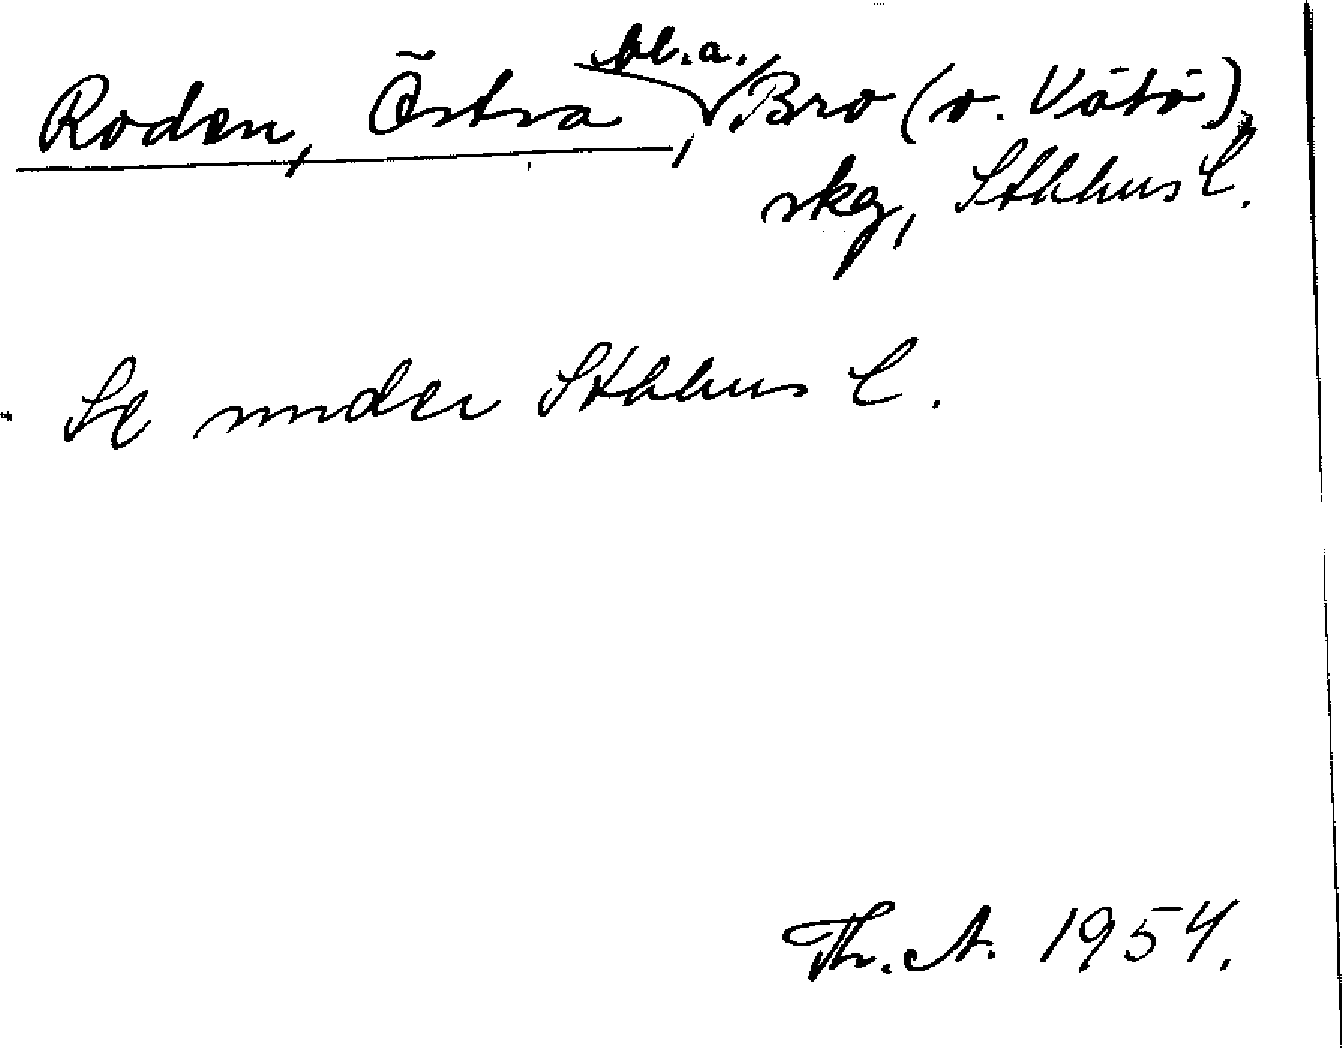 Roden, Östra, bl.a. Bro (o. Vätö),
skg, Sthhus l.
Se under Sthhus l.
Th. A. 1954.